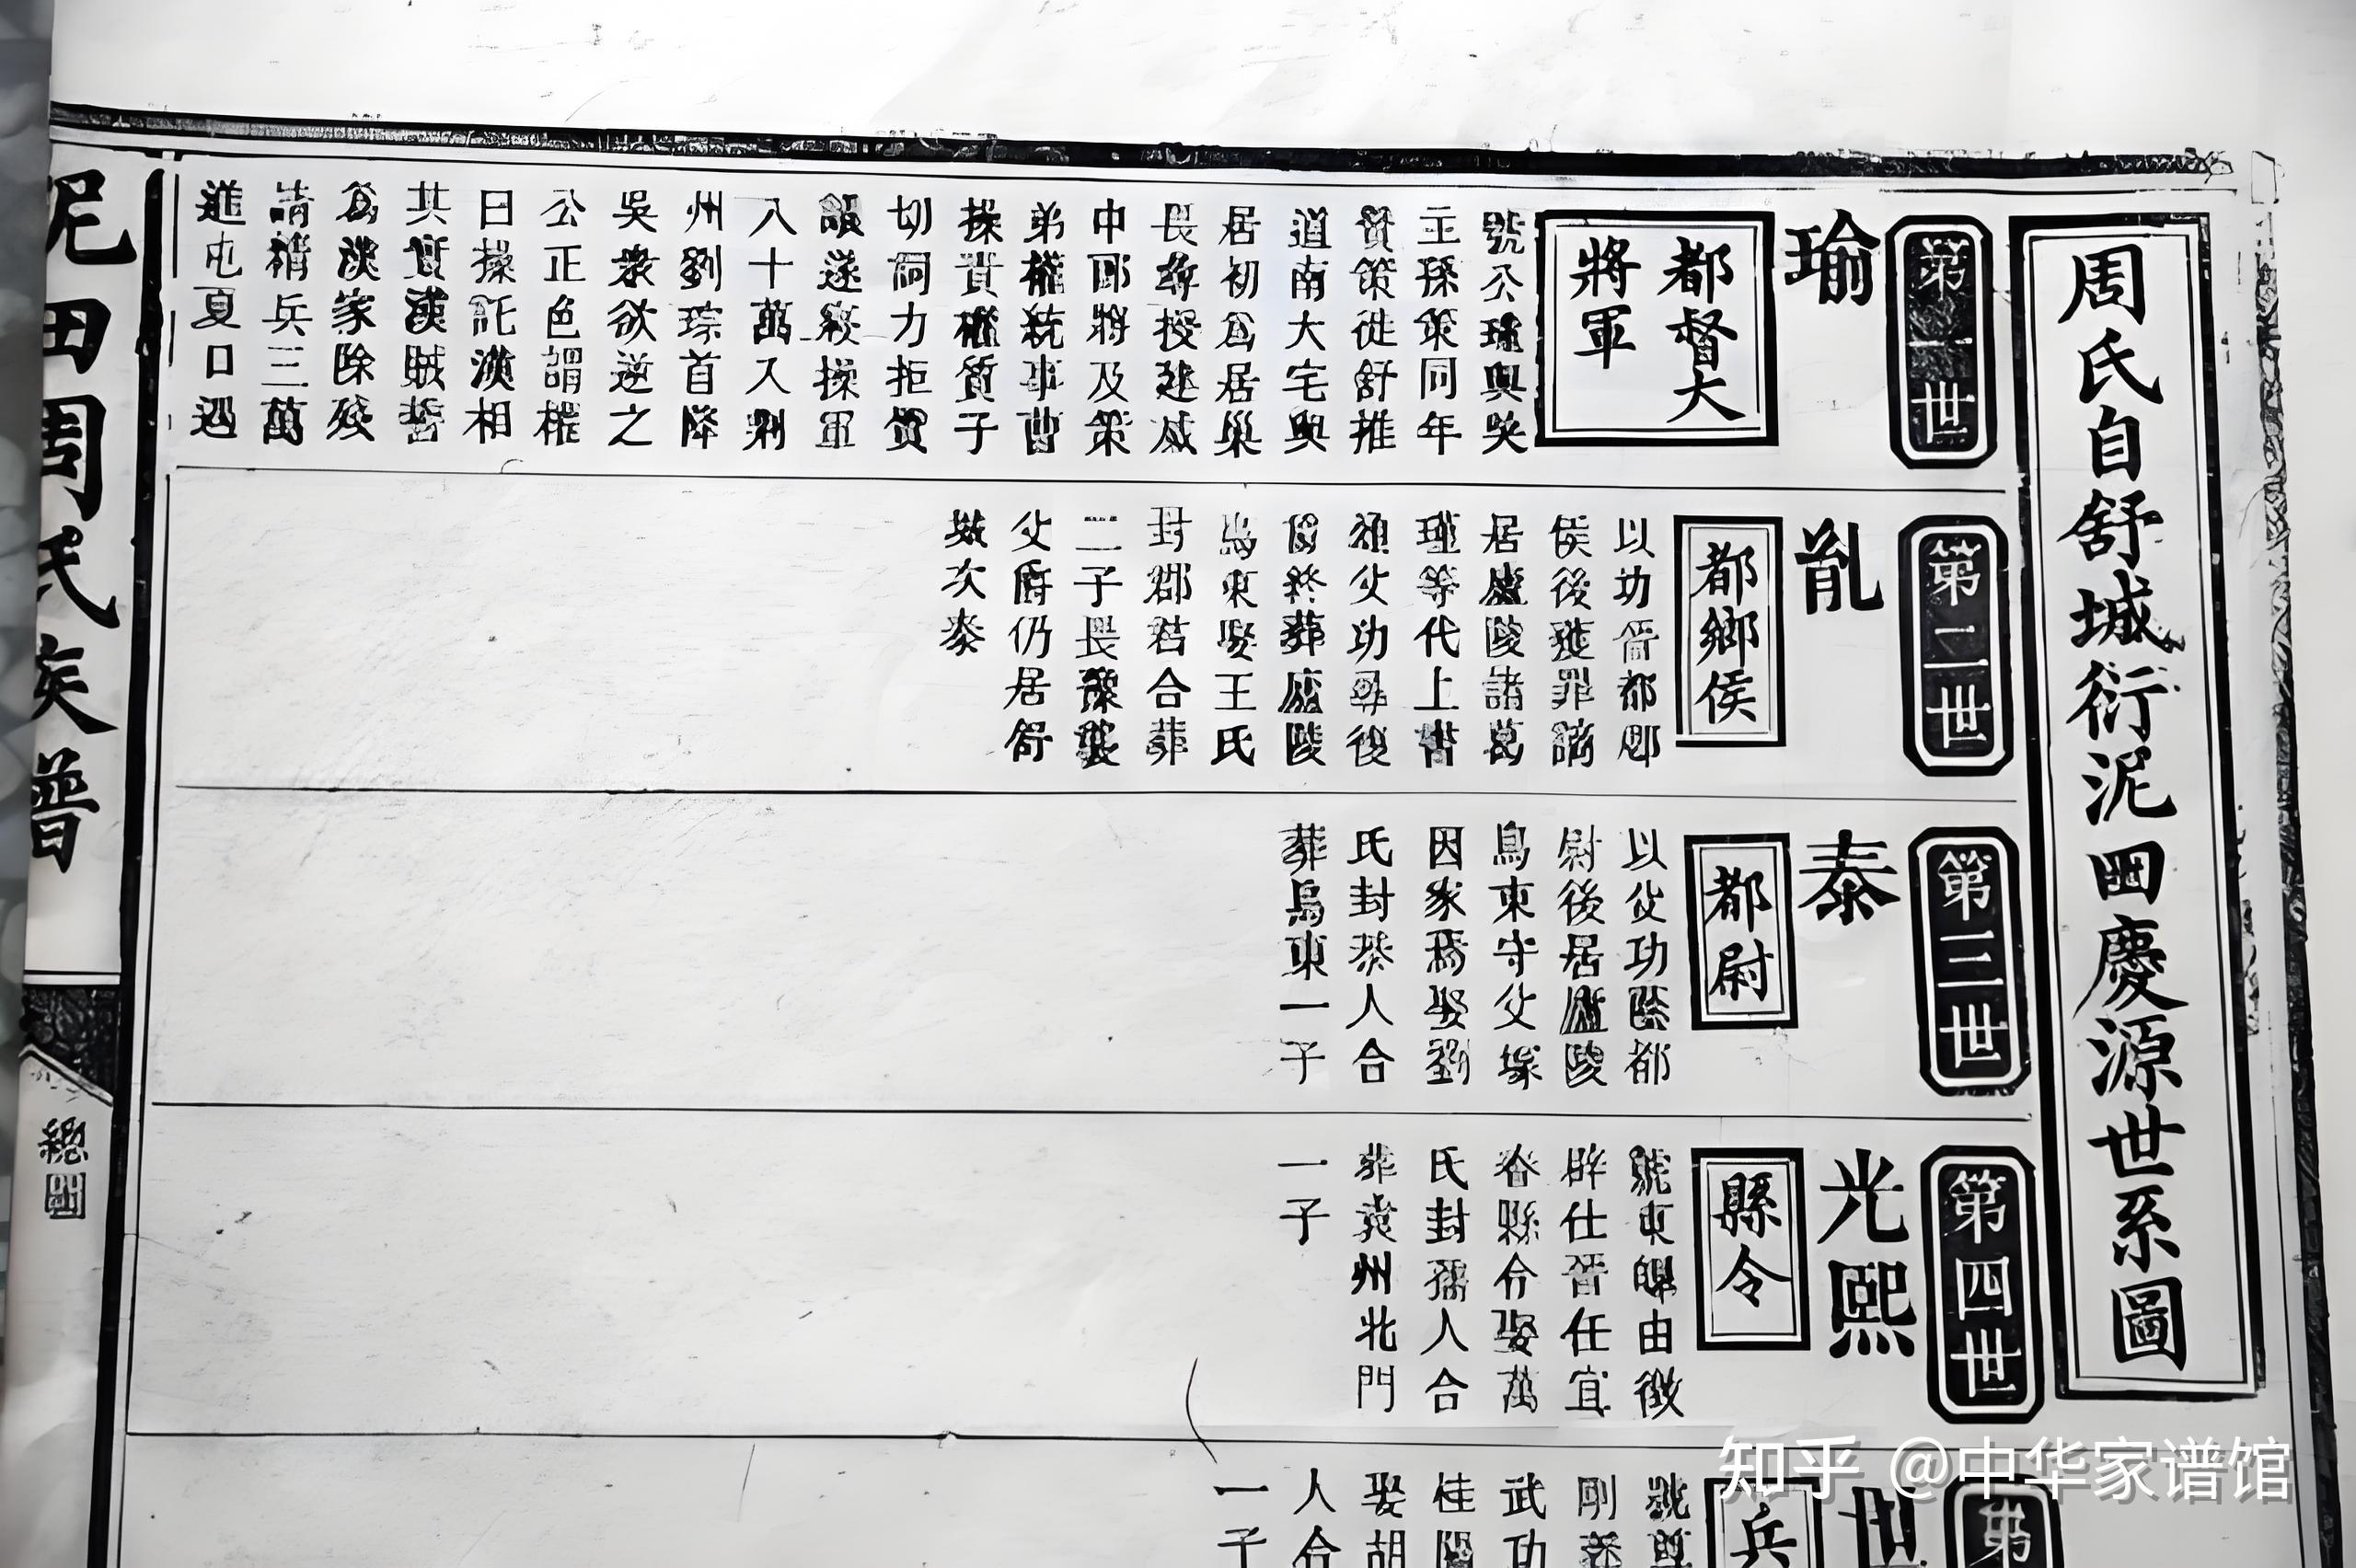 周氏自舒城衍泥田慶源世系圖
第一世
瑜
都督大
將軍
號公瑾與吳
主孫策同年
質策徙舒推
道南大宅與
居初為居巢
長尋授建威
中郎將及策
弟權統事曹
操責權質子
切同力拒質
韻遂發操軍
八十萬入荆
州劉琮首降
吳衆欲逆之
公正色謂權
曰操託漢相
共實漢賊誓
為漢家除殘
請精兵三萬
進屯夏口遇
第二世
胤
都鄉侯
以功晉都鄉
侯後進罪謫
居廬陵諸葛
瑾等代上書
頌父功尋復
爵終葬廬陵
烏東娶王氏
封郡君合葬
二子長豫襲
父爵仍居舒
城次泰
第三世
泰
都尉
以父功蔭都
尉後居廬陵
烏東守父塚
因家焉娶劉
氏封恭人合
葬烏東一子
第四世
光熙
縣令
號東皥由徵
辟仕晉任宜
春縣令娶萬
氏封孺人合
葬袁州北門
一子
第
世
兵
號尊
剛
武功
桂陽
娶胡
人合
一子
泥田周氏族普
總圖
知乎 @中华家谱馆